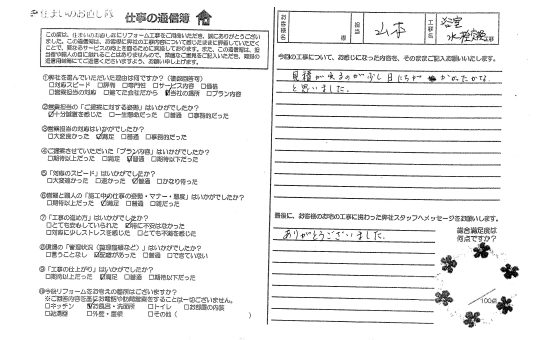 住まいのお直し隊
仕事の通信簿
この度は、住まいのお直し隊にリフォーム工事をご用命いただき、誠にありがとうございました。
①弊社を選んでいただいた理由は何ですか?(複数回答可)
□対応スピード □評判 □専門性 □サービス内容 □価格
☑当社の場所 □プラン内容
②営業担当の「ご提案に対する姿勢」はいかがでしたか?
☑十分誠意を感じた □一生懸命だった □普通 □事務的だった
③営業担当の対応はいかがでしたか?
□大変良かった ☑満足 □普通 □事務的だった
④ご提案させていただいた「プラン内容」はいかがでしたか?
□期待以上だった □満足 ☑普通 □期待以下だった
⑤「対応のスピード」はいかがでしたか?
□大変速かった □速かった ☑普通 □かなり待った
⑥職人の「施工中の仕事の姿勢・マナー・態度」はいかがでしたか?
□期待以上だった ☑満足 □普通 □雑だった
⑦「工事の進め方」はいかがでしたか?
□とても安心していられた ☑特に不安はなかった
□対応に少しストレスを感じた □とても不満を感じた
⑧現場の「管理状況(整理整頓など)」はいかがでしたか?
□言うことなし ☑配慮があった □普通 □できていない
⑨「工事の仕上がり」はいかがでしたか?
□期待以上だった ☑満足 □普通 □期待以下だった
⑩今回リフォームをお考えの箇所はございますか?
□キッチン ☑お風呂・洗面所 □トイレ □お部屋の内装
□給湯器 □外壁・屋根 □その他( )
お客様名
山本
様
工事名
浴室
工事
今回の工事について、お感じになった内容を、そのままご記入お願いいたします。
見積が出るのが少し日にちが かかったかな。
と思いました。
最後に、お客様のお宅の工事に携わった弊社スタッフへメッセージをお願いします。
ありがとうございました。
総合満足度は
何点ですか?
/100点